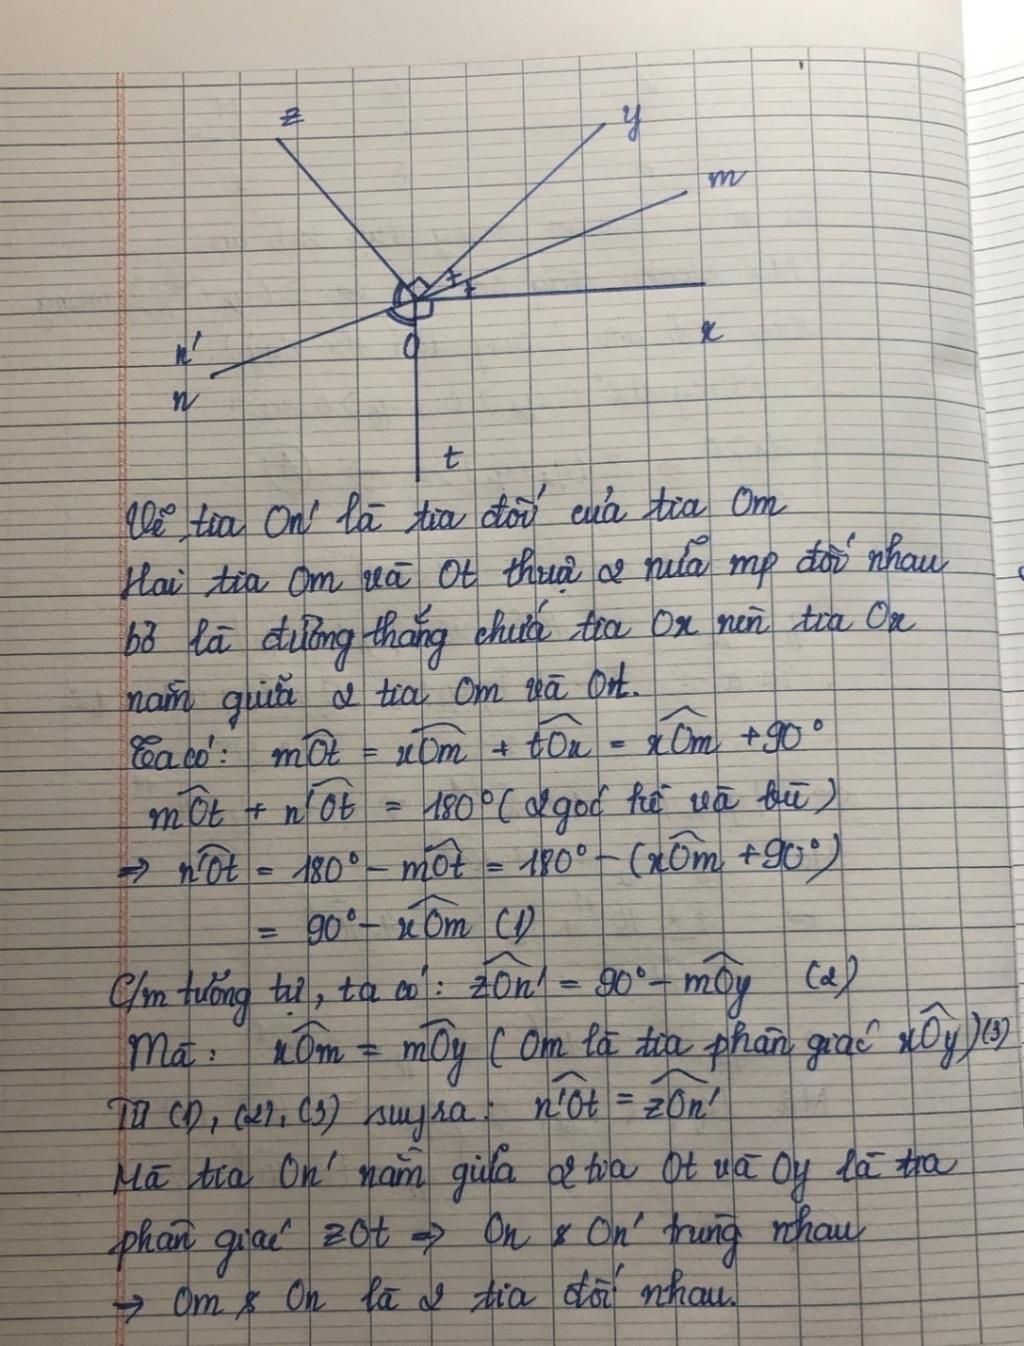 z
y
m
n'
O
x
n
t
Vẽ tia On' là tia đối của tia Om
Hai tia Om và Ot thuộc 2 nửa mp đối nhau
bờ là đường thẳng chứa tia Ox nên tia Ox
nằm giữa 2 tia Om và Ot.
Ta có: mÔt = xÔm + tÔx = xÔm + 90°
mÔt + n'Ôt = 180° (2 góc kề và bù)
⇒ n'Ôt = 180° - mÔt = 180° - (xÔm + 90°)
= 90° - xÔm (1)
C/m tương tự, ta có: zÔn' = 90° - mÔy (2)
Mà: xÔm = mÔy (Om là tia phân giác xÔy) (3)
Từ (1), (2), (3) suy ra: n'Ôt = zÔn'
Mà tia On' nằm giữa 2 tia Ot và Oy là tia
phân giác zOt ⇒ On & On' trùng nhau
→ Om & On là 2 tia đối nhau.